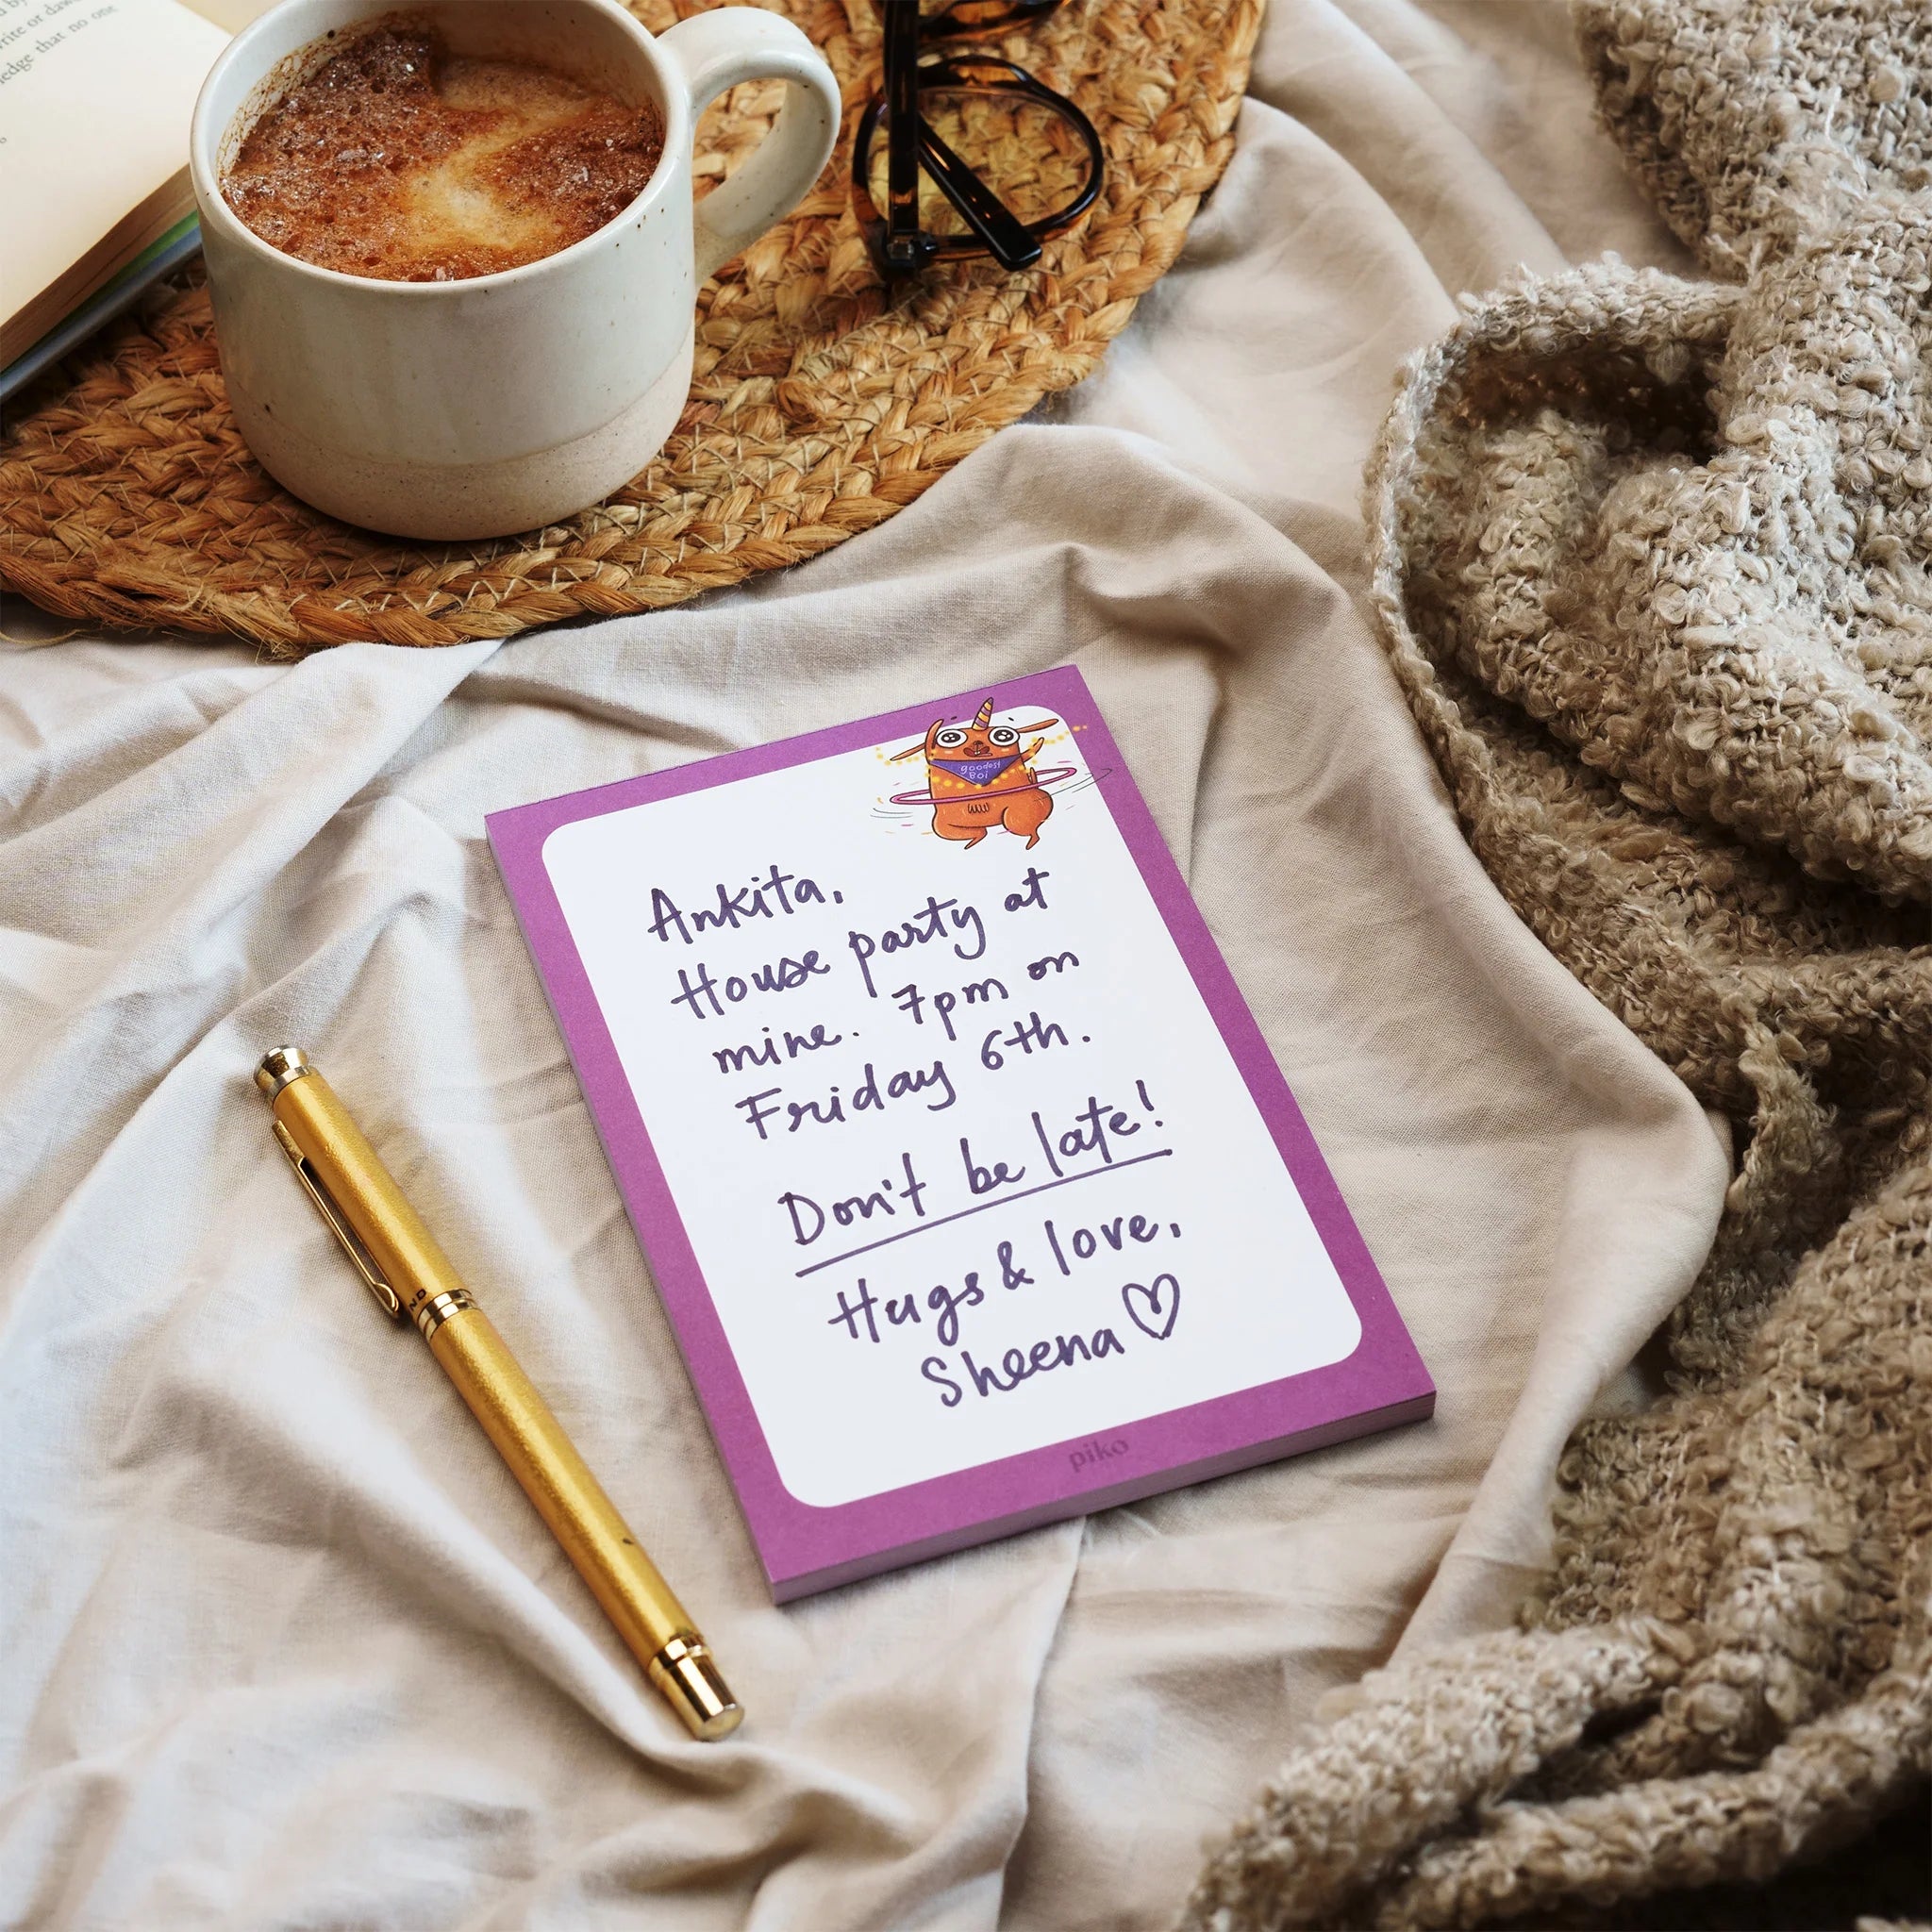 write or daw
edge that no one
goodest
Boi
Ankita,
House party at
mine. 7pm on
Friday 6th.
Don't be late!
Hugs & love,
Sheena ♡
piko
ND